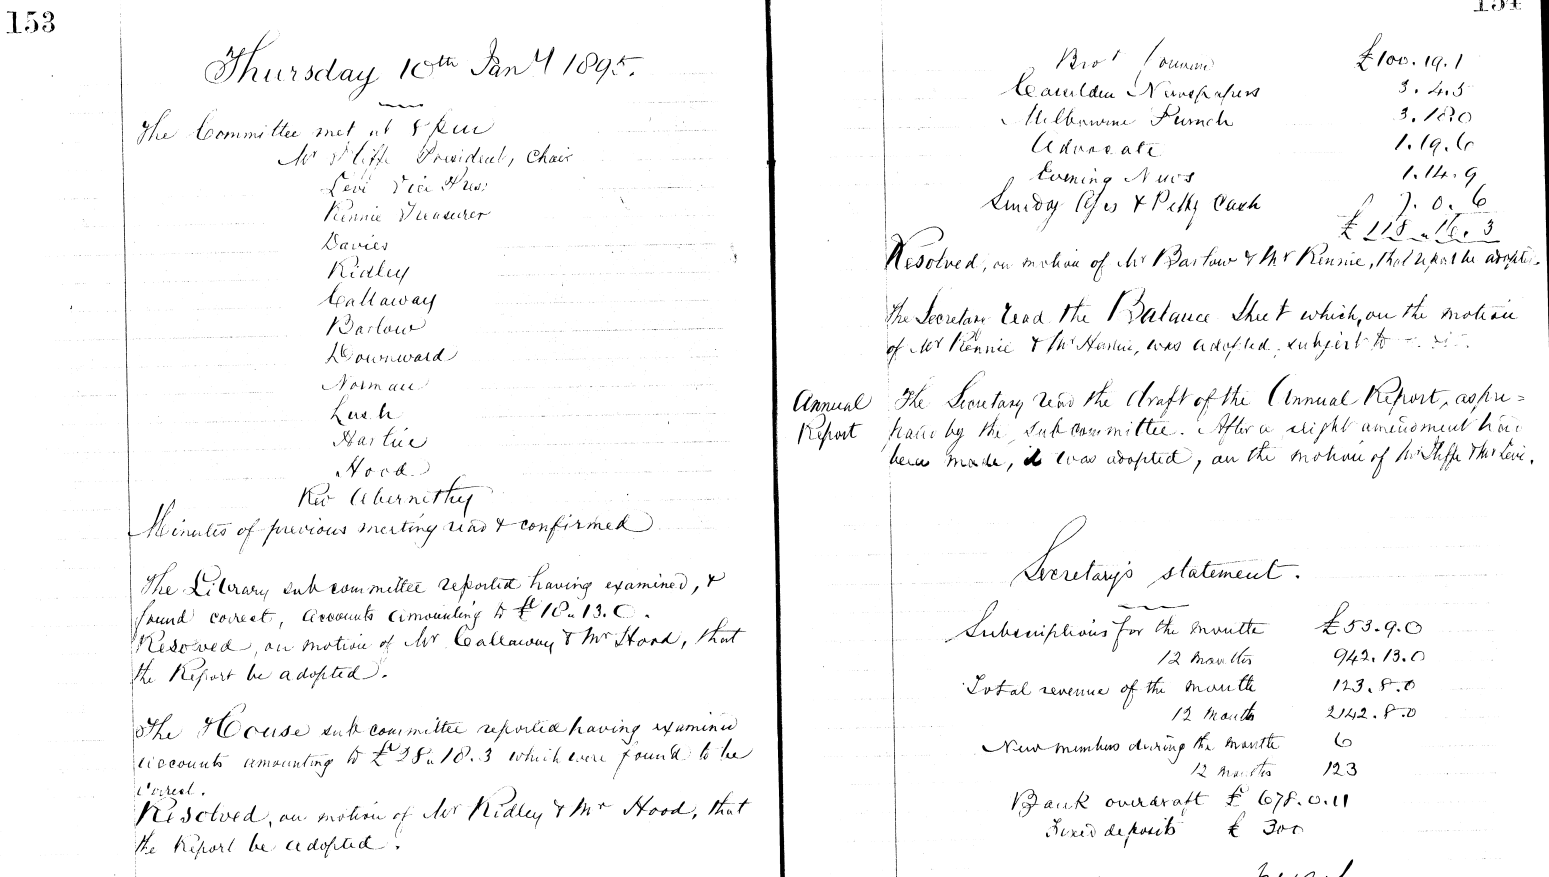 153
Thursday 10th Jany 1895.
The Committee met at 8 pm
Mr Iliffe President, Chair
Levi Vice Pres:
Rennie Treasurer
Davies
Ridley
Callaway
Barlow
Downward
Norman
Lush
Hastie
Hood
Rev Abernethy
Minutes of previous meeting read & confirmed
The Library sub committee reported having examined, &
found correct, accounts amounting to £18.13.0.
Resolved, on motion of Mr Callaway & Mr Hood, that
the Report be adopted.
The House sub committee reported having examined
accounts amounting to £38.18.3 which were found to be
correct.
Resolved, on motion of Mr Ridley & Mr Hood, that
the Report be adopted.
154
Brot £100.19.1
Newspapers 3.4.5
Melbourne Punch 3.18.0
Advocate 1.19.6
Evening News 1.14.9
Sunday & Petty Cash 7.0.6
£118.16.3
Resolved, on motion of Mr Barlow & Mr Rennie, that report be adopted.
The Secretary read the Balance Sheet which, on the motion
of Mr Rennie & Mr Hastie, was adopted, subject to
Annual
Report
The Secretary read the draft of the Annual Report, as pre=
pared by the sub committee. After a slight amendment had
been made, it was adopted, on the motion of Mr Iliffe & Mr Levi.
Secretary's statement.
Subscriptions for the month £53.9.0
12 months 942.13.0
Total revenue of the month 123.8.0
12 months 2142.8.0
New members during the month 6
12 months 123
Bank overdraft £678.0.11
Fixed deposits £300